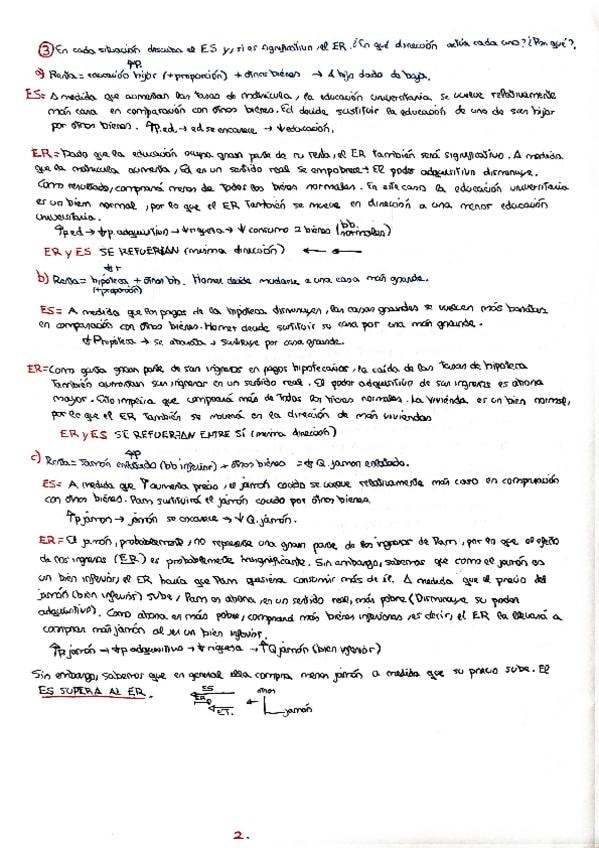 ③ En cada situación describa el ES y, si es significativo, el ER. ¿En qué dirección actúa cada uno? ¿Por qué?
↑P.
a) Renta = educación hijos (+ proporción) + otros bienes → 1 hijo dado de baja.
ES = A medida que aumentan las tasas de matrícula, la educación universitaria se vuelve relativamente
más cara en comparación con otros bienes. Ed decide sustituir la educación de uno de sus hijos
por otros bienes. ↑P.ed → ed se encarece → ↓educación.
ER = Dado que la educación ocupa gran parte de su renta, el ER también será significativo. A medida
que la matrícula aumenta, Ed en un sentido real se empobrece. El poder adquisitivo disminuye.
Como resultado, comprará menos de todos los bienes normales. En este caso la educación universitaria
es un bien normal, por lo que el ER también se mueve en dirección a una menor educación
universitaria.
↑p.ed → ↓p.adquisitivo → ↓riqueza → ↓ consumo 2 bienes (bb. normales)
ER y ES SE REFUERZAN (misma dirección) ← ←
↓r
b) Renta = hipoteca + otros bb. Homer decide mudarse a una casa más grande.
(+ proporción)
ES = A medida que los pagos de la hipoteca disminuyen, las casas grandes se vuelven más baratas
en comparación con otros bienes. Homer decide sustituir su casa por una más grande.
↓Phipoteca → se abarata → sustituye por casa grande.
ER = Como gasta gran parte de sus ingresos en pagos hipotecarios, la caída de las tasas de hipoteca
también aumentan sus ingresos en un sentido real. El poder adquisitivo de sus ingresos es ahora
mayor. Esto implica que comprará más de todos los bienes normales. La vivienda es un bien normal,
por lo que el ER también se moverá en la dirección de más viviendas
ER y ES SE REFUERZAN ENTRE SÍ (misma dirección)
↑P
c) Renta = Jamón enlatado (bb inferior) + otros bienes = ↓Q. jamón enlatado.
ES = A medida que ↑aumenta precio, el jamón cocido se vuelve relativamente más caro en comparación
con otros bienes. Pam sustituirá el jamón cocido por otros bienes.
↑p jamón → jamón se encarece → ↓ Q. jamón.
ER = El jamón, probablemente, no represente una gran parte de los ingresos de Pam, por lo que el efecto
de los ingresos (ER) es probablemente insignificante. Sin embargo, sabemos que como el jamón es
un bien inferior, el ER haría que Pam quisiera consumir más de él. A medida que el precio del
jamón (bien inferior) sube, Pam es ahora, en un sentido real, más pobre (Disminuye su poder
adquisitivo). Como ahora es más pobre, comprará más bienes inferiores, es decir, el ER la llevará a
comprar más jamón al ser un bien inferior.
↑p jamón → ↓p adquisitivo → ↓ riqueza → ↑Q jamón (bien inferior)
Sin embargo, sabemos que en general ella compra menos jamón a medida que su precio sube. El
ES SUPERA AL ER.
ES
ER
ET.
otros
jamón
2.